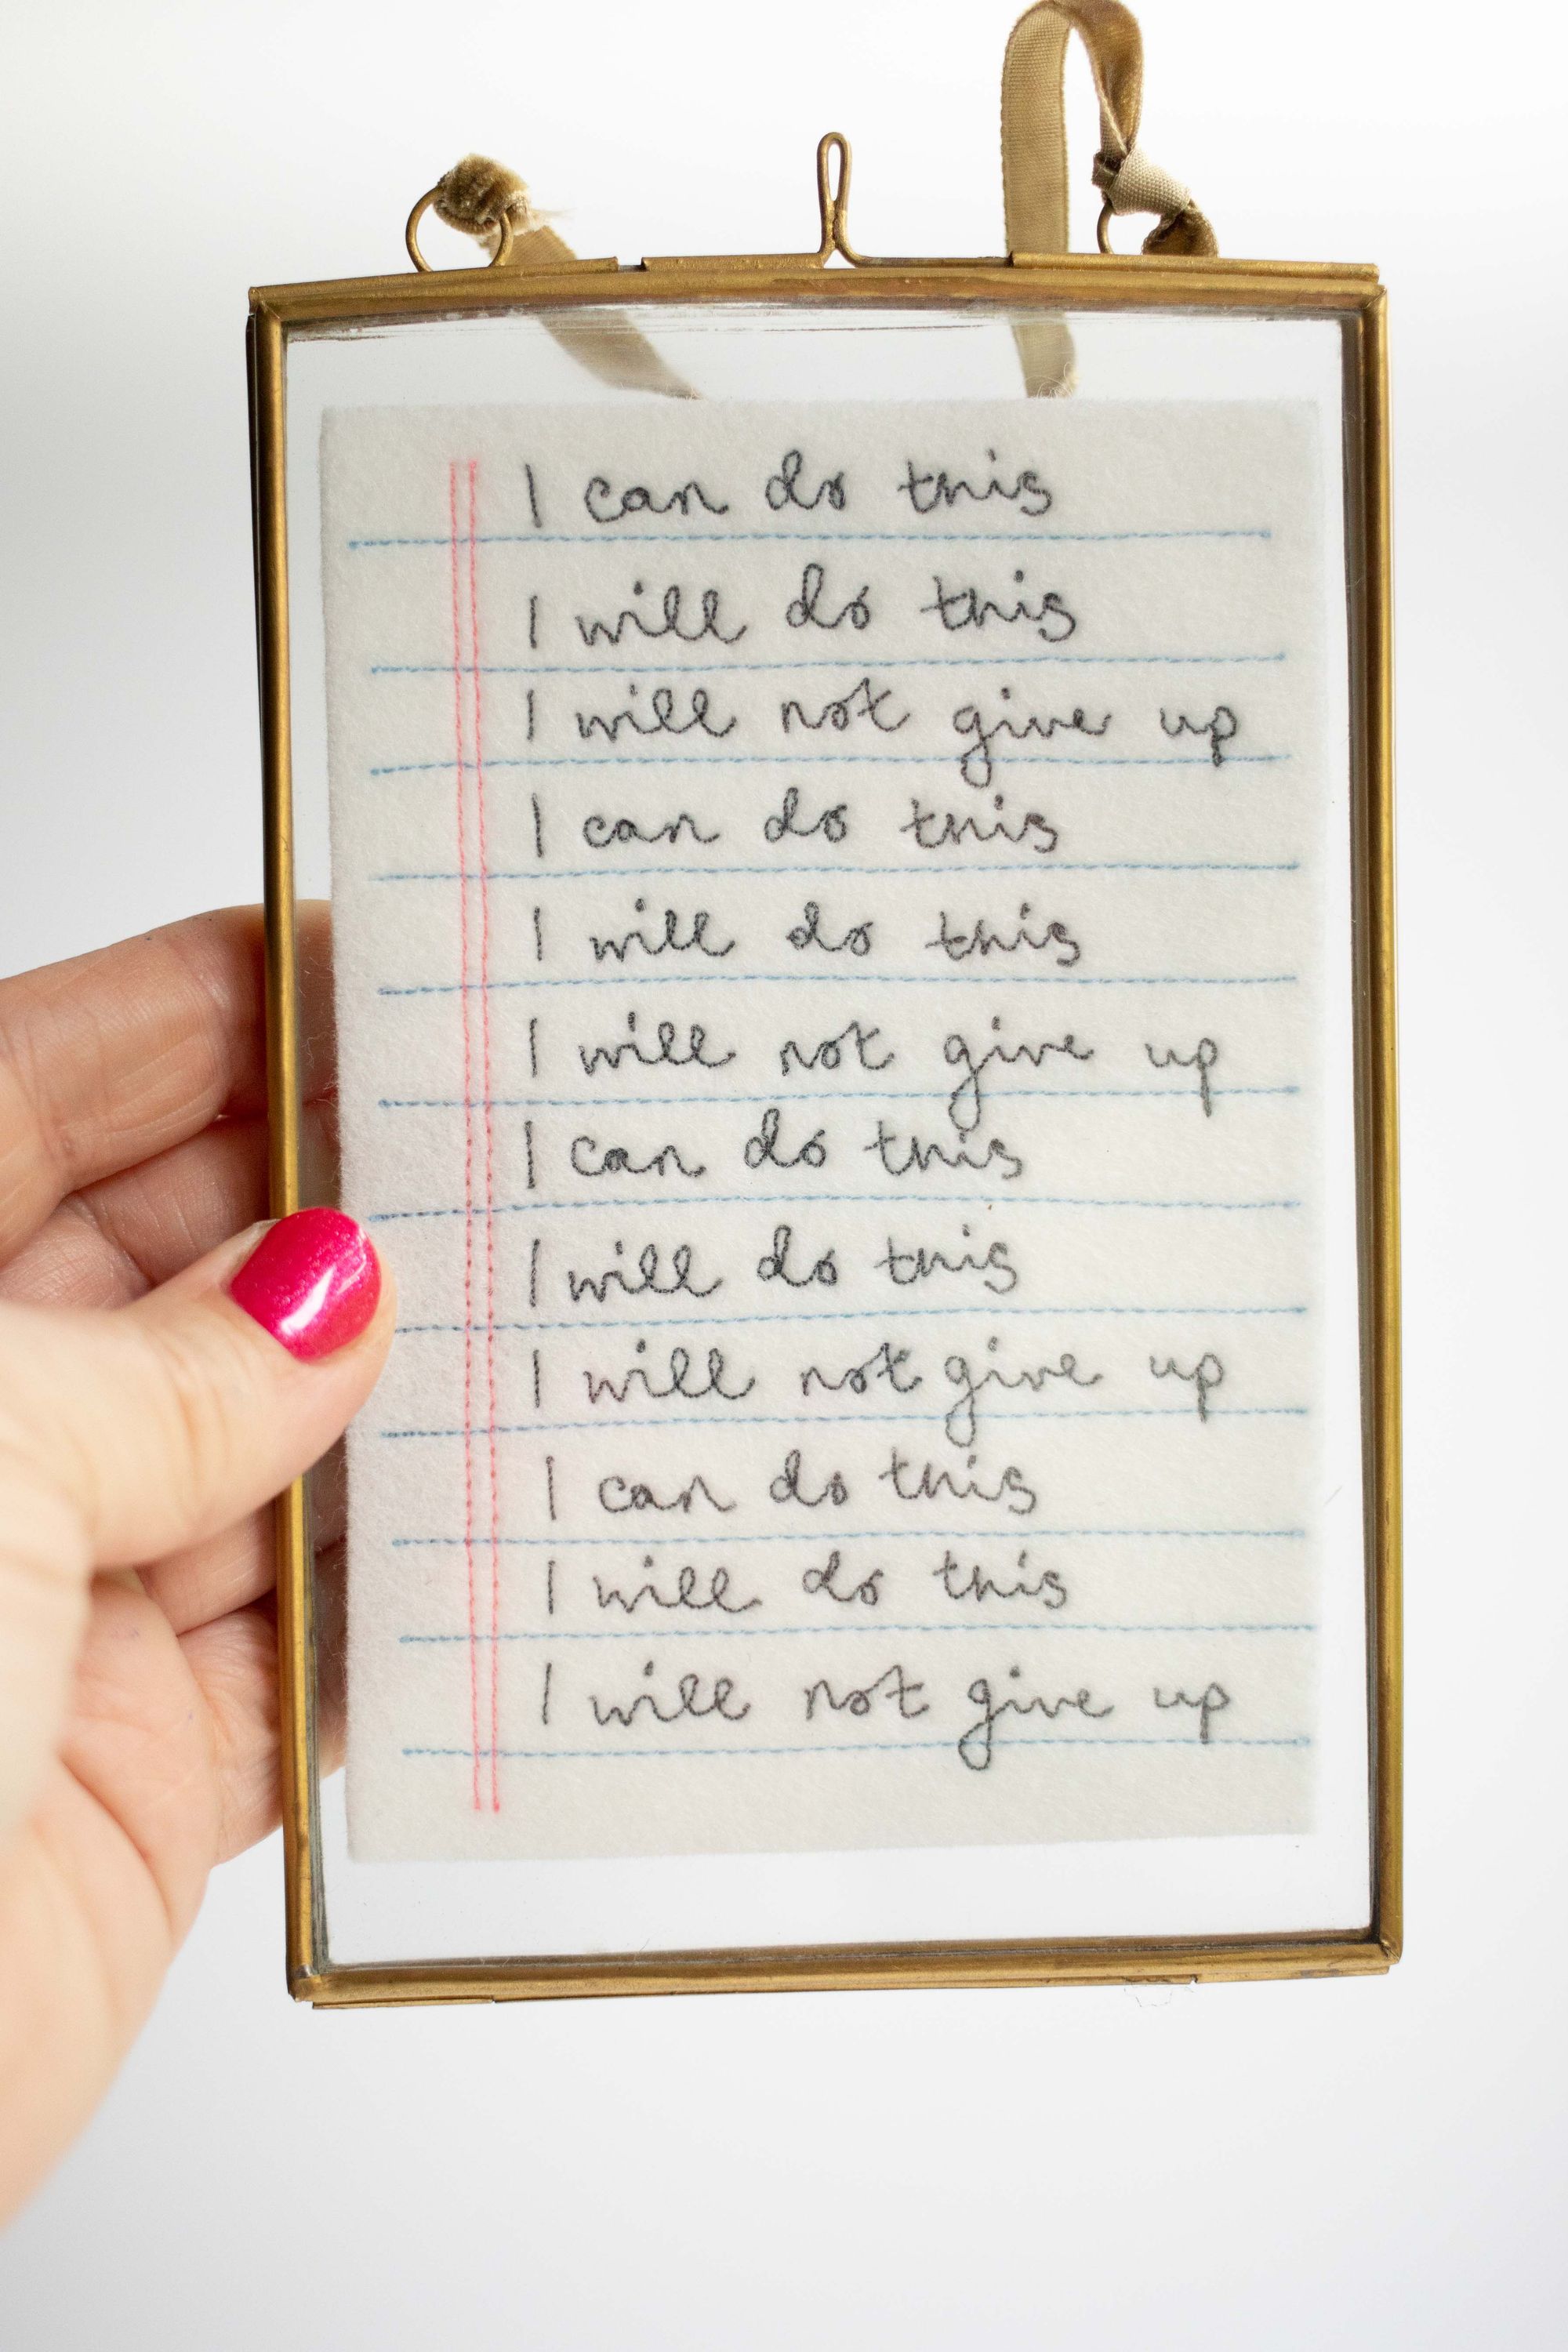 I can do this
I will do this
I will not give up
I can do this
I will do this
I will not give up
I can do this
I will do this
I will not give up
I can do this
I will do this
I will not give up